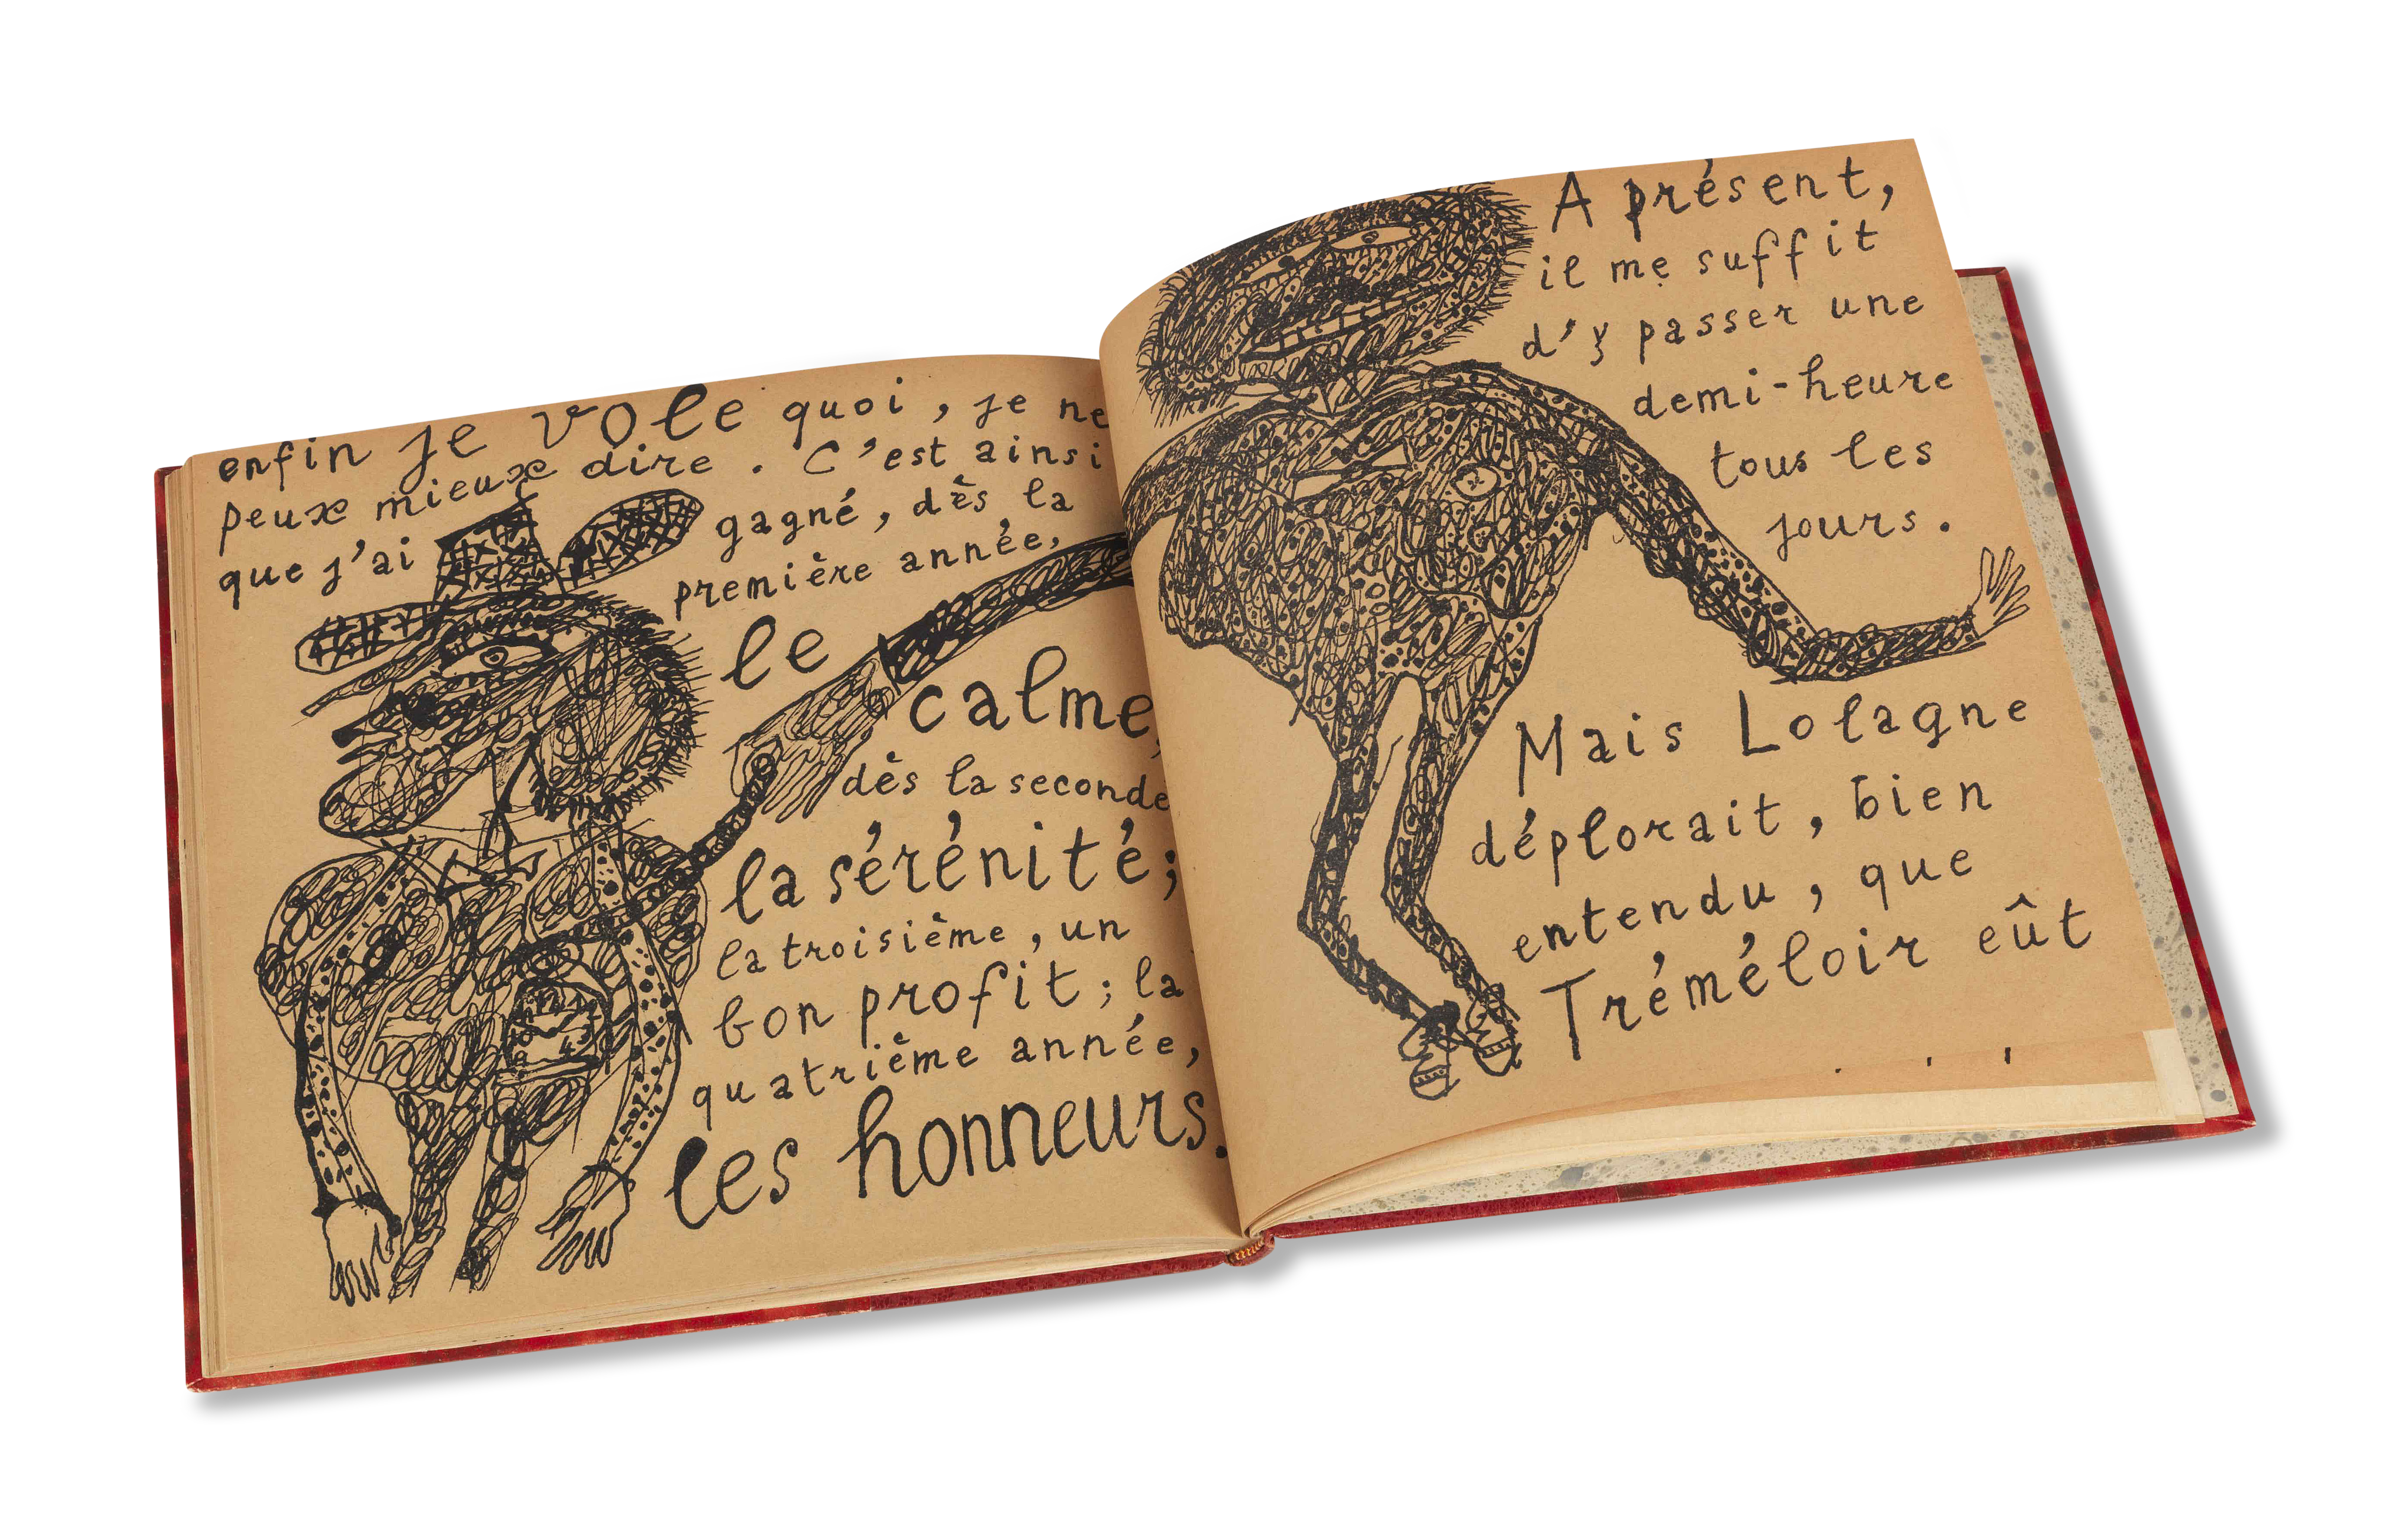 enfin je vole quoi, je ne
peux mieux dire. C'est ainsi
que j'ai gagné, dès la
première année,
le
calme,
dès la seconde
la sérénité;
la troisième, un
bon profit; la
quatrième année,
les honneurs.
A présent,
il me suffit
d'y passer une
demi-heure
tous les
jours.
Mais Lolagne
déplorait, bien
entendu, que
Tréméloir eût